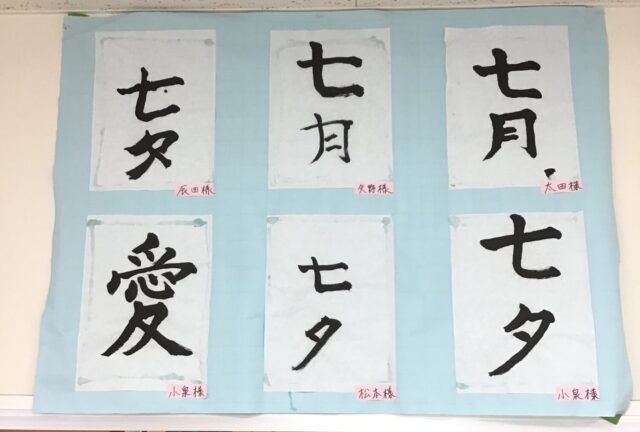 七夕
辰田様
七月
矢野様
七月
太田様
愛
小泉様
七夕
松本様
七夕
小泉様